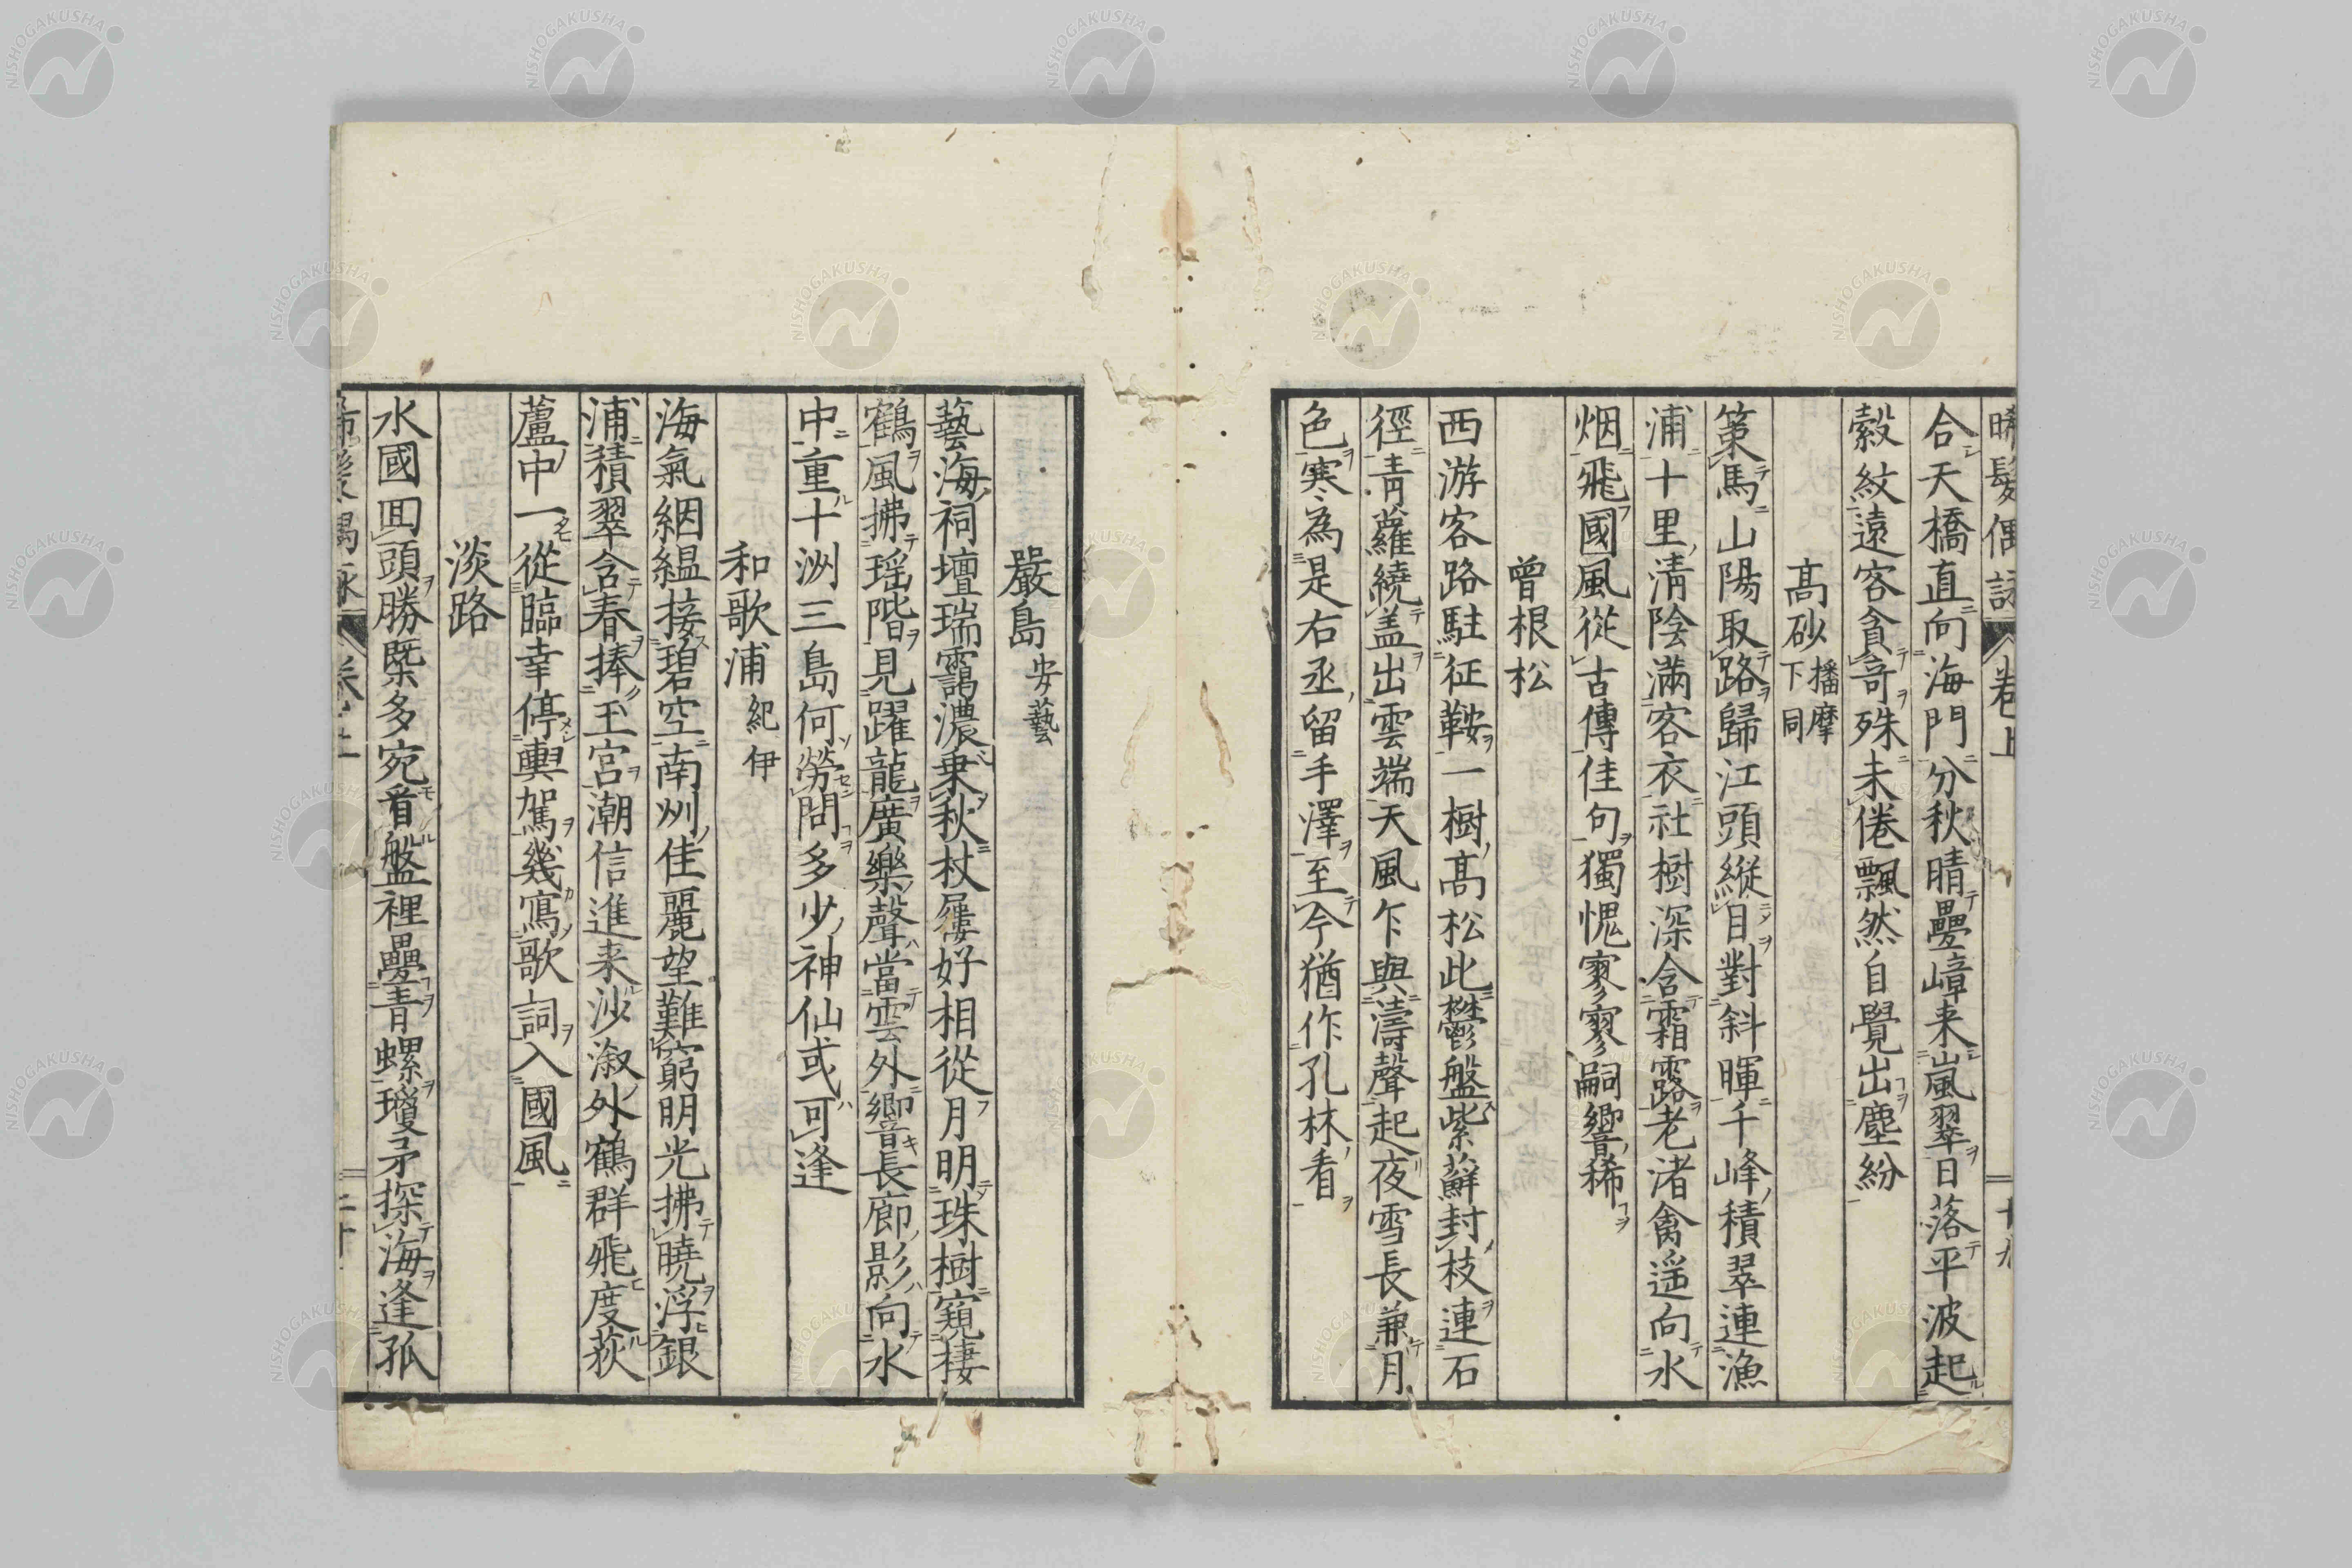 晞髮偶詠 卷上 十九
合天橋直向海門分秋晴疊嶂来嵐翠日落平波起
縠紋遠客貪奇殊未倦飄然自覺出塵紛
高砂 播摩下同
策馬山陽取路歸江頭縱目對斜暉千峰積翠連漁
浦十里清陰滿客衣社樹深含霜露老渚禽遥向水
烟飛國風從古傳佳句獨愧寥寥嗣響稀
曾根松
西游客路駐征鞍一樹高松此鬱盤紫蘚封枝連石
徑青蘿繞盖出雲端天風乍與濤聲起夜雪長兼月
色寒為是右丞留手澤至今猶作孔林看
嚴島 安藝
藝海祠壇瑞靄濃乗秋杖屨好相從月明珠樹窺棲
鶴風拂瑶階見躍龍廣樂聲當雲外響長廊影向水
中重十洲三島何勞問多少神仙或可逢
和歌浦 紀伊
海氣絪縕接碧空南州佳麗望難窮明光拂曉浮銀
浦積翠含春捧玉宮潮信進来沙溆外鶴群飛度荻
蘆中一從臨幸停輿駕幾寫歌詞入國風
淡路
水國回頭勝槩多宛看盤裡疊青螺瓊矛探海逢孤